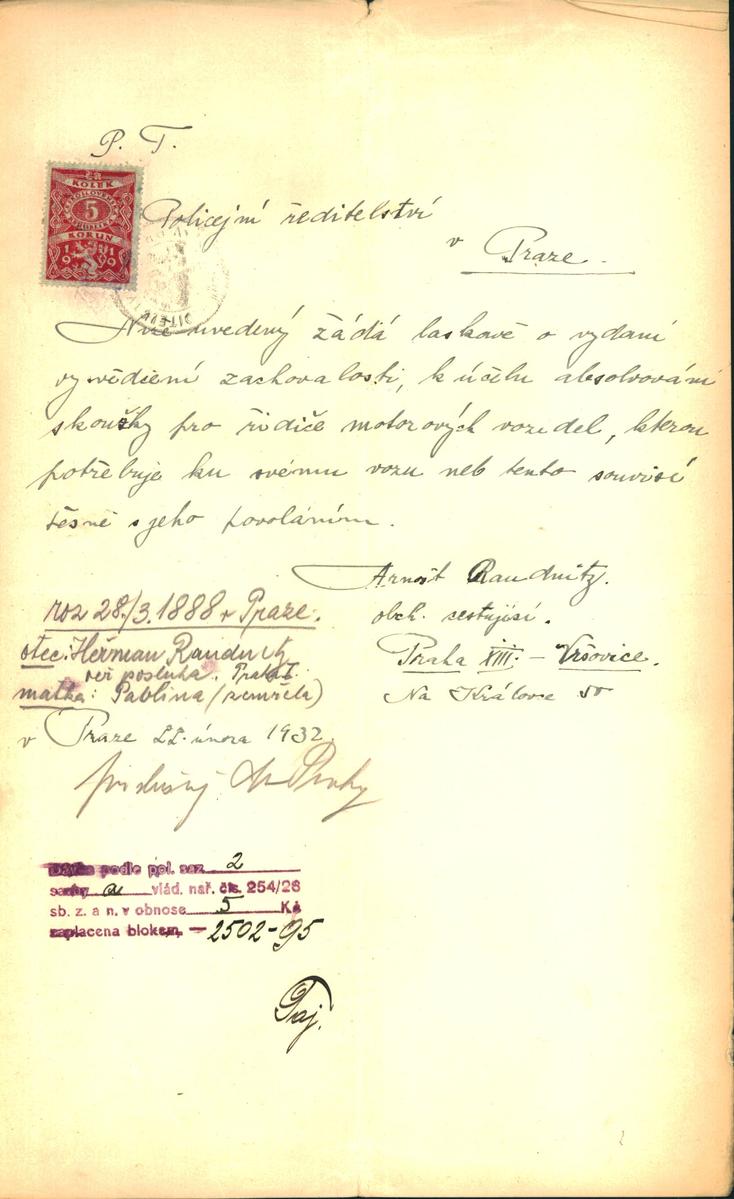 P. T.
ČR
KOLEK
5
KORUN
Policejní ředitelství
v Praze.
Níže uvedený žádá laskavě o vydaní
vysvědčení zachovalosti, k účelu absolvování
skoušky pro řidiče motorových vozidel, kterou
potřebuje ku svému vozu neb tento souvisí
těsně s jeho povoláním.
Arnošt Raudnitz.
obch. cestující.
Praha XIII. – Vršovice.
Na Královce 50
roz 28./3. 1888 v Praze.
otec: Heřman Raudnitz
posluha. Praha
matka: Pavlina (zemřela)
v Praze 22. února 1932.
příslušný do Prahy
Dávka podle pol. saz. 2
sazby a vlád. nař. čís. 254/26
sb. z. a n. v obnose 5 Kč
zaplacena blokem – 2502-95